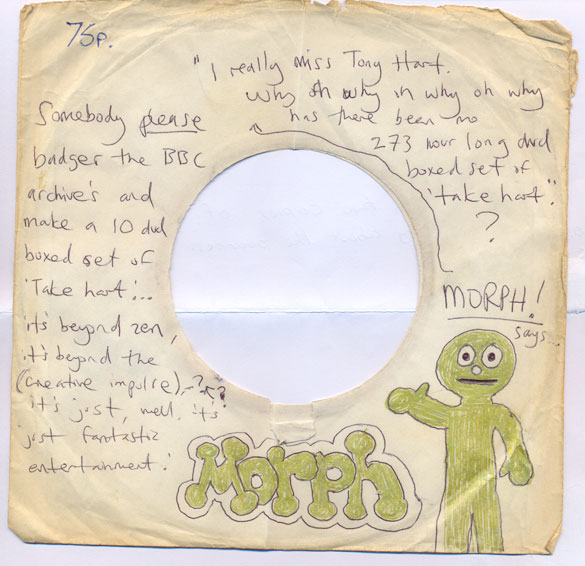 75p.
"I really miss Tony Hart.
why oh why oh why oh why
has there been no
273 hour long dvd
boxed set of
'take hart'."
?
MORPH!
says...
Somebody please
badger the BBC
archive's and
make a 10 dvd
boxed set of
'Take hart'...
it's beyond zen,
it's beyond the
(creative impulse),-?-?
it's just, well, it's
just fantastic
entertainment.'
Morph